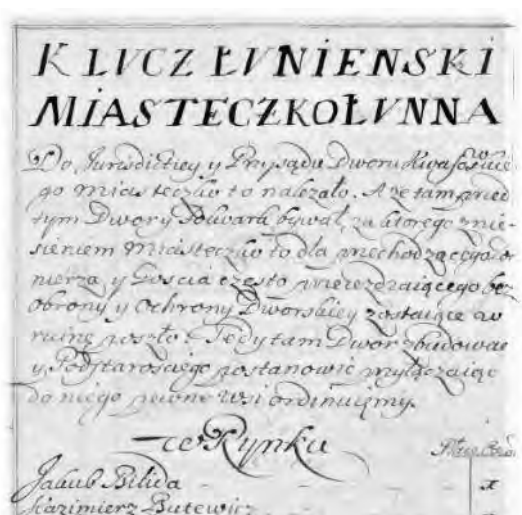 KLVCZ ŁVNIENSKI
MIASTECZKO ŁVNNA
Do Jurisdictiey y Prysądu Dworu Kwasowskie-
go miasteczko to nalezało. A ze tam przed
tym Dwor y Folwark bywał, za ktorego znie-
sieniem Miasteczko to dla przechodzącego
nierza y Goscia często przeiezdzaiącego bez
obrony y Ochrony Dworskiey zostaiąc w
ruinę poszło. Tedy tam Dwor zbudowac
y Podstarosciego postanowic przyłączaiąc
do niego pewne wsi ordinuiemy.
w Rynku
Jakub Bilida
Kazimierz Butewicz